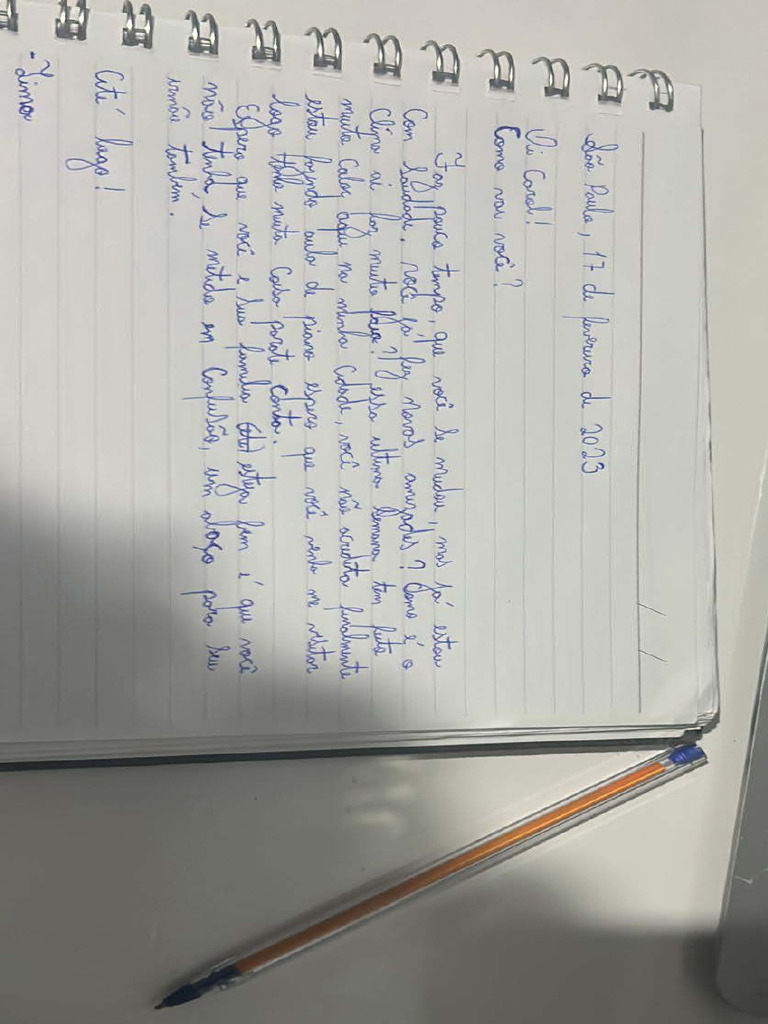 São Paulo, 17 de fevereiro de 2023
Oi Carol!
Como vai você?
Faz pouco tempo, que você se mudou, mas já estou
com saudade, você já fez novas amizades? Como é o
clima ai faz muito? essa ultima semana tem feito
muito calor aqui na minha cidade, você não acredita finalmente
estou fazendo aula de piano espero que você venha me visitar
logo tenho muita coisa para te conta.
Espero que você e sua familia esteja bem é que você
não tenha se metido em confusão, um abraço para seu
irmão também.
Até logo!
-Lima